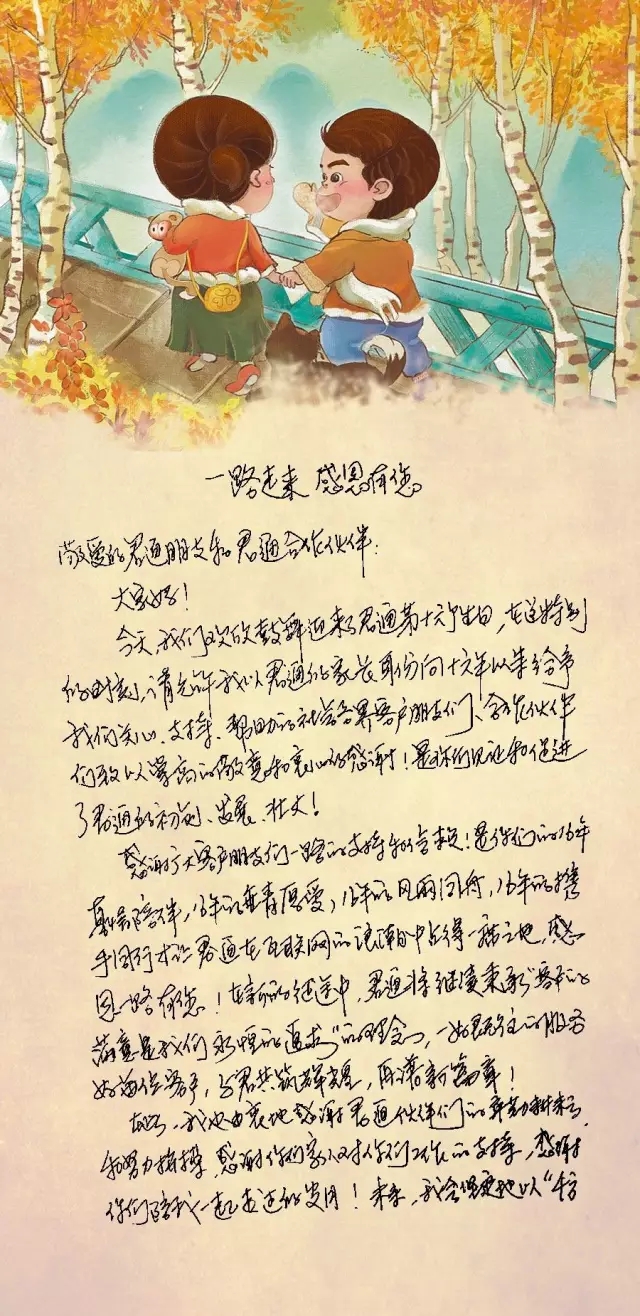 一路走来 感恩有您
敬爱的君通朋友和君通合作伙伴:
大家好!
今天,我们欢欣鼓舞迎来了君通第十六个生日,在这特别
的时刻,请允许我以君通的家长身份向十六年以来给予
我们关心、支持、帮助的社会各界客户朋友们、合作伙伴
们致以崇高的敬意和衷心的感谢!是你们见证和促进
了君通的初创、发展、壮大!
感谢广大客户朋友们一路的支持和信赖!是你们的16年
真情陪伴,16年的垂青厚爱,16年的风雨同舟,16年的携
手同行才让君通在互联网的浪潮中占得一席之地,感
恩一路有您!在新的征途中,君通将继续秉承“客户的
满意是我们永恒的追求”的理念,一如既往的服务
好每位客户,与君共筑辉煌,再谱新篇章!
在此,我也由衷地感谢君通伙伴们的辛勤耕耘
和努力拼搏,感谢你们家人对你们工作的支持,感谢
你们陪我一起走过的岁月!未来,我会 地以“